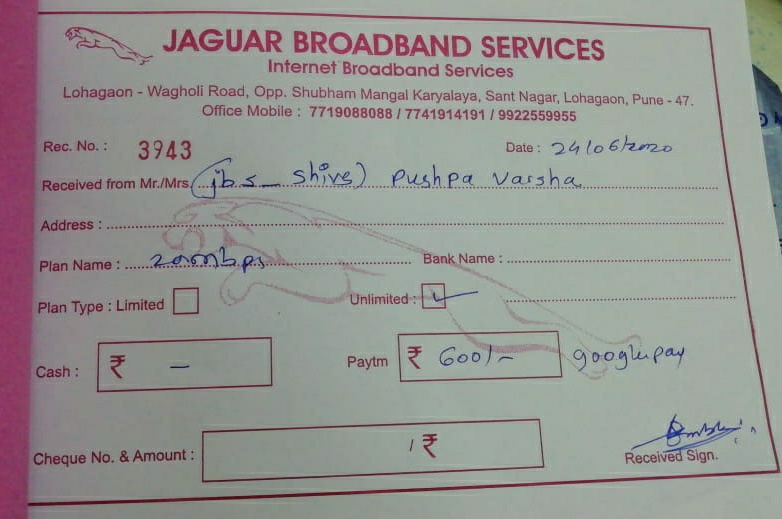 JAGUAR BROADBAND SERVICES
Internet Broadband Services
Lohagaon - Wagholi Road, Opp. Shubham Mangal Karyalaya, Sant Nagar, Lohagaon, Pune - 47.
Office Mobile : 7719088088 / 7741914191 / 9922559955
Rec. No. : 3943 Date : 24/06/2020
Received from Mr./Mrs (jbs_shivs) Pushpa Varsha
Address :
Plan Name : 20mbps Bank Name :
Plan Type : Limited Unlimited : ✓
Cash : ₹ – Paytm ₹ 600/- googlepay
Cheque No. & Amount : / ₹
Received Sign.